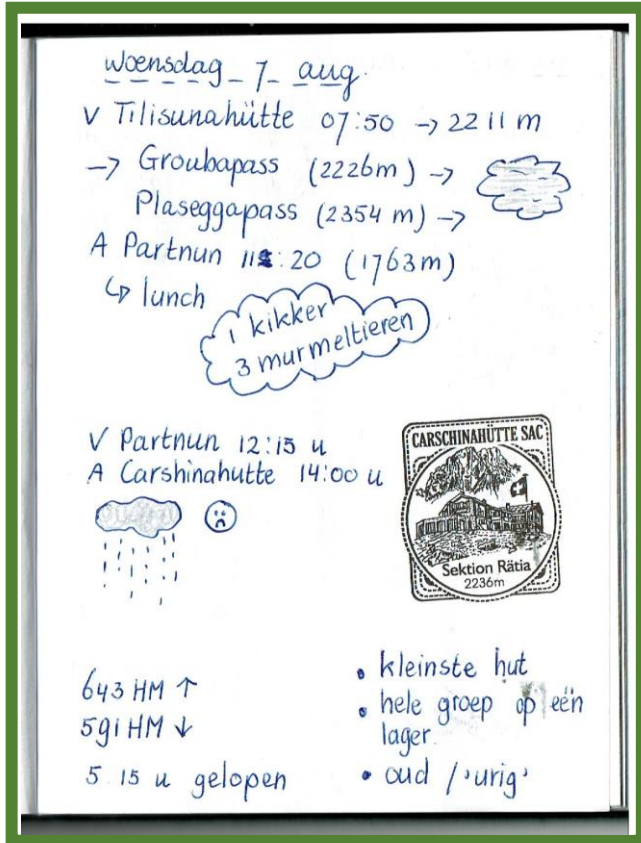 Woensdag - 7 - aug.
V Tilisunahütte 07:50 → 2211 m
→ Groubapass (2226m) →
Plaseggapass (2354 m) →
A Partnun 11:20 (1763m)
↳ lunch
1 kikker
3 murmeltieren
V Partnun 12:15 u
A Carshinahutte 14:00 u
CARSCHINAHÜTTE SAC
Sektion Rätia
2236m
643 HM ↑
591 HM ↓
5.15 u gelopen
• kleinste hut
• hele groep op eën
lager.
• oud / 'urig'